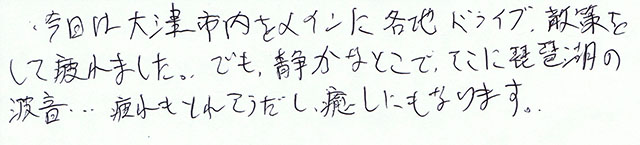 今日は大津市内をメインに各地ドライブ、散策を
して疲れました。。でも、静かなとこで、そこに琵琶湖の
波音…疲れもとれそうだし、癒しにもなります。。